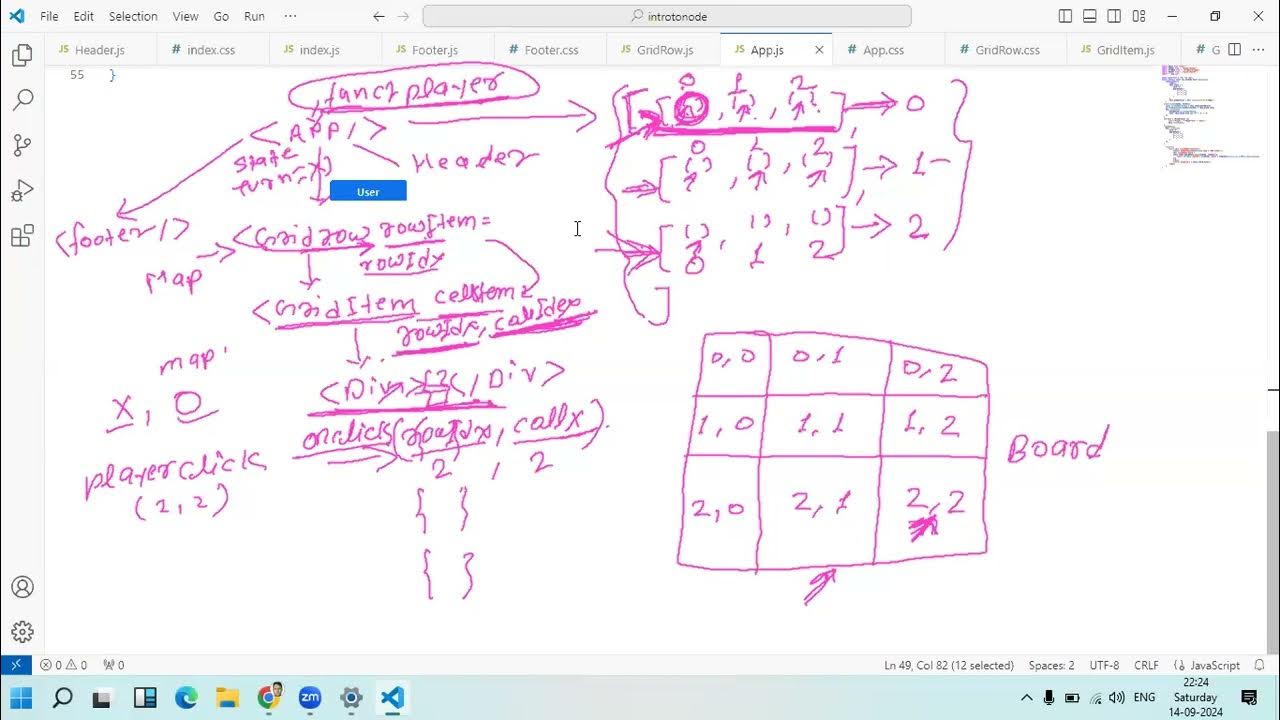 File Edit Selection View Go Run ··· introtonode
JS Header.js # index.css JS index.js JS Footer.js # Footer.css JS GridRow.js JS App.js # App.css # GridRow.css JS GridItem.js # G
55 }
funct player
<APP/>
state
turn=
Header
User
<footer/>
<Gridrow rowItem=
rowIdx
Map
<GridItem cellItem=
rowIdx, callIdex
map
X, O
<Div> </Div>
onclick(rowIdx, callx).
2, 2
playerclick
(2,2)
{ }
{ }
0 1 2
[ , , ] → 0
0 1 2
[{}, {}, {}] → 1
[{}, {}, {}] → 2
0 1 2
]
0,0 0,1 0,2
1,0 1,1 1,2
2,0 2,1 2,2
Board
0 0 0
Ln 49, Col 82 (12 selected) Spaces: 2 UTF-8 CRLF JavaScript
zm
ENG
22:24
Saturday
14-09-2024